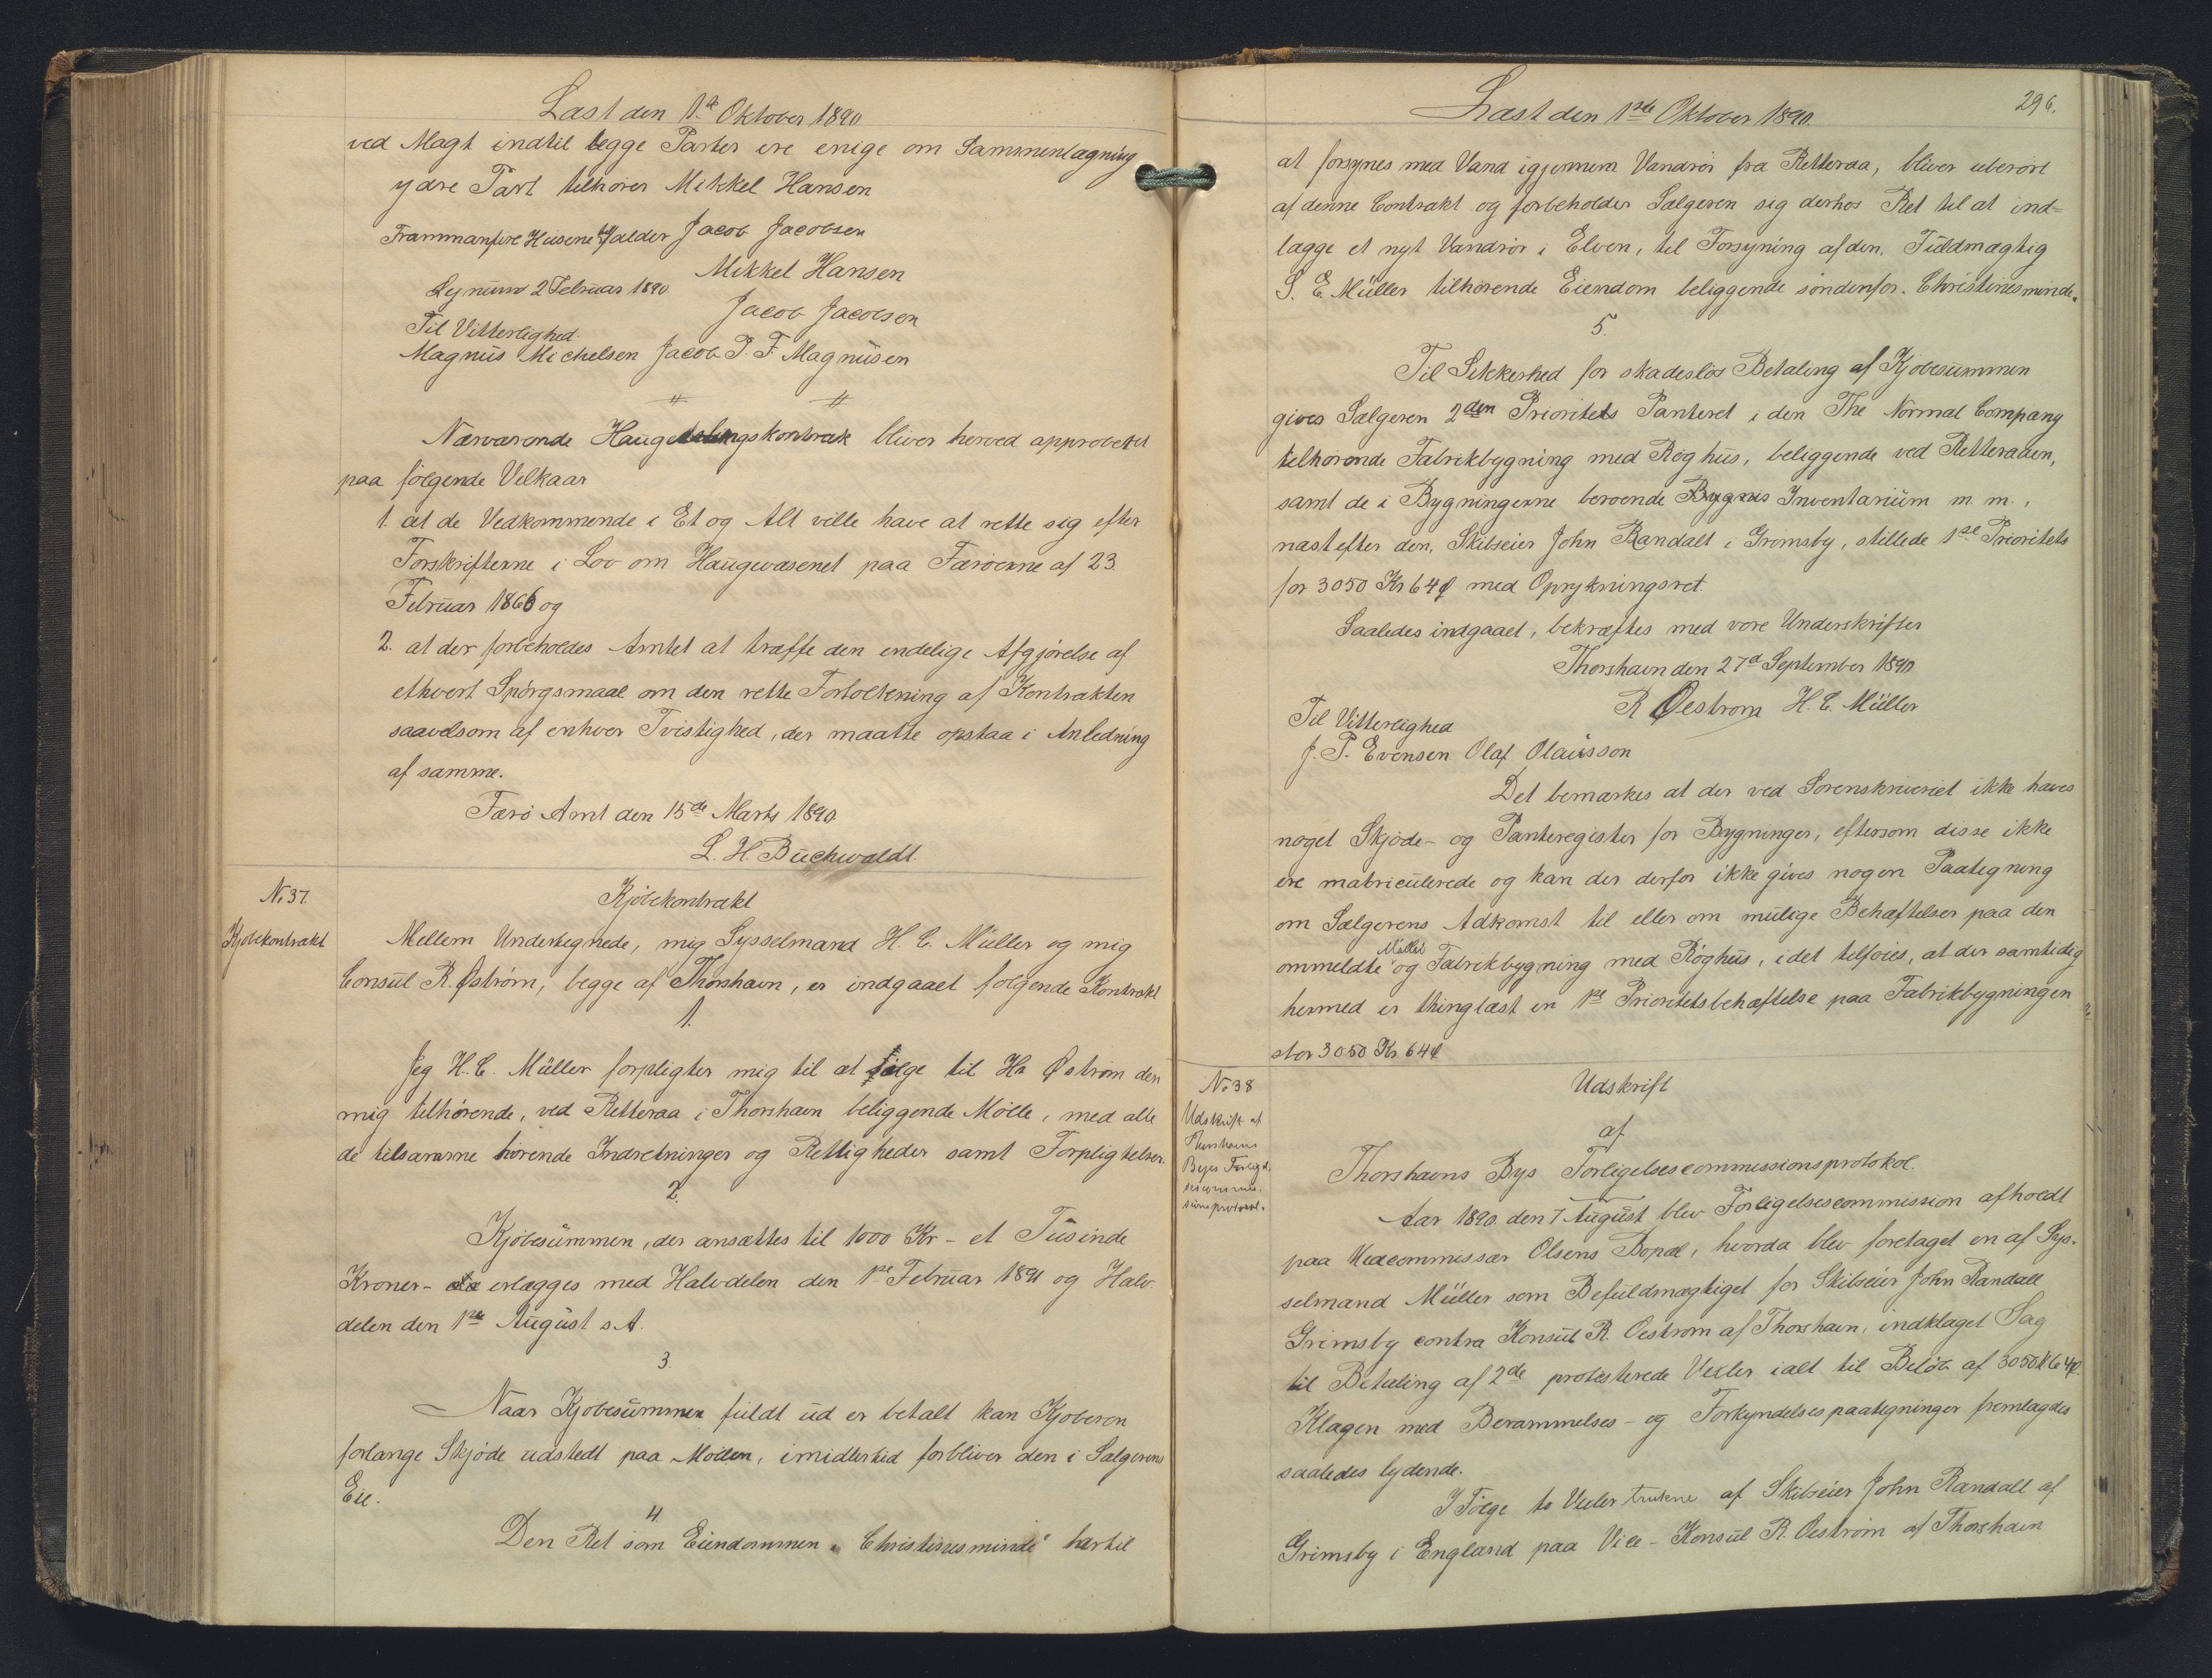 Læst den 1ste Oktober 1890
ved Magt indtil begge Parter ere enige om Sammenlægning
ydre Part tilhører Mikkel Hansen
Frammanfyre Husene tilfalder Jacob Jacobsen
Mikkel Hansen
Leynum 2 Februar 1890.
Jacob Jacobsen
Til Vitterlighed.
Magnus Michelsen Jacob P. F. Magnusen
Nærværende Haugedelingskontrak bliver herved approberet
paa følgende Vilkaar
1. at de Vedkommende i Et og Alt ville have at rette sig efter
Forskrifterne i Lov om Haugevæsenet paa Færøerne af 23.
Februar 1866 og
2. at der forbeholdes Amtet at træffe den endelige Afgjørelse af
ethvert Spørgsmaal om den rette Fortolkning af Kontrakten
saavelsom af enhver Tvistighed, der maatte opstaa i Anledning
af samme.
Færø Amt den 15de Marts 1890.
L. H. Buchwaldt.
No 37.
Kjøbekontrakt
Kjøbekontrakt
Mellem Undertegnede, mig Sysselmand H. C. Müller og mig
Consul R. Østrøm, begge af Thorshavn, er indgaaet følgende Kontrakt
1.
Jeg H. C. Müller forpligter mig til at sælge til Hr Østrøm den
mig tilhørende, ved Retteraa i Thorshavn beliggende Mølle, med alle
de tilsamme hørende Indretninger og Rettigheder samt Forpligtelser.
2.
Kjøbesummen, der ansættes til 1000 Kr - et Tusinde
Kroner - erlægges med Halvdelen den 1ste Februar 1891 og Halv-
delen den 1ste August s. A.
3.
Naar Kjøbesummen fuldt ud er betalt kan Kjøberen
forlange Skjøde udstedt paa Møllen, imidlertid forbliver den i Sælgerens
Eie.
4.
Den Ret som Eiendommen "Christinesminde" har til
Læst den 1ste Oktober 1890.
296.
at forsynes med Vand igjennem Vandrør fra Retteraa, bliver uberørt
af denne Contrakt og forbeholder Sælgeren sig derhos Ret til at ind=
lægge et nyt Vandrør i Elven, til Forsyning af den, Fuldmægtig
S. E. Müller tilhørende Eiendom beliggende søndenfor Christinesminde.
5.
Til Sikkerhed for skadesløs Betaling af Kjøbesummen
gives Sælgeren 2den Prioritets Panteret i den The Normal Company
tilhørende Fabrikbygning med Røghus, beliggende ved Retteraaen,
samt de i Bygningerne beroende Inventarium m. m.,
næst efter den, Skibseier John Randall i Grimsby, stillede 1ste Prioritets
for 3050 Kr 64 Ø med Oprykningsret.
Saaledes indgaaet, bekræftes med vore Underskrifter
Thorshavn den 27d September 1890
R Oestrom H. C. Müller
Til Vitterlighed
J. P. Evensen Olaf Olaisson
Det bemærkes at der ved Sorenskriveriet ikke haves
noget Skjøde- og Panteregister for Bygninger, eftersom disse ikke
ere matriculerede og kan der derfor ikke gives nogen Paategning
om Sælgerens Adkomst til eller om mulige Behæftelser paa den
ommeldte Mølle og Fabrikbygning med Røghus, idet tilføies, at der samtidig
hermed er thinglæst en 1ste Prioritetsbehæftelse paa Fabrikbygningen
stor 3050 Kr 64 Ø
No 38
Udskrift af
Thorshavns
Byes Forligel-
sescommis-
sionsprotokol.
Udskrift
af
Thorshavns Bys Forligelsescommissionsprotokol.
Aar 1890. den 7 August blev Forligelsescommission afholdt
paa Vedcommissær Olsens Bopæl, hvorda blev foretaget en af Sys-
selmand Müller som Befuldmægtiget for Skibseier John Randall
Grimsby contra Konsul R. Oestrom af Thorshavn, indklaget Sag
til Betaling af 2de protesterede Vexler ialt til Beløb af 3050 K 64 Ø.
Klagen med Berammelses- og Forkyndelsespaategninger fremlagdes
saaledes lydende.
I Følge to Vexler trukne af Skibseier John Randall af
Grimsby i England paa Vice-Konsul R. Oestrøm af Thorshavn